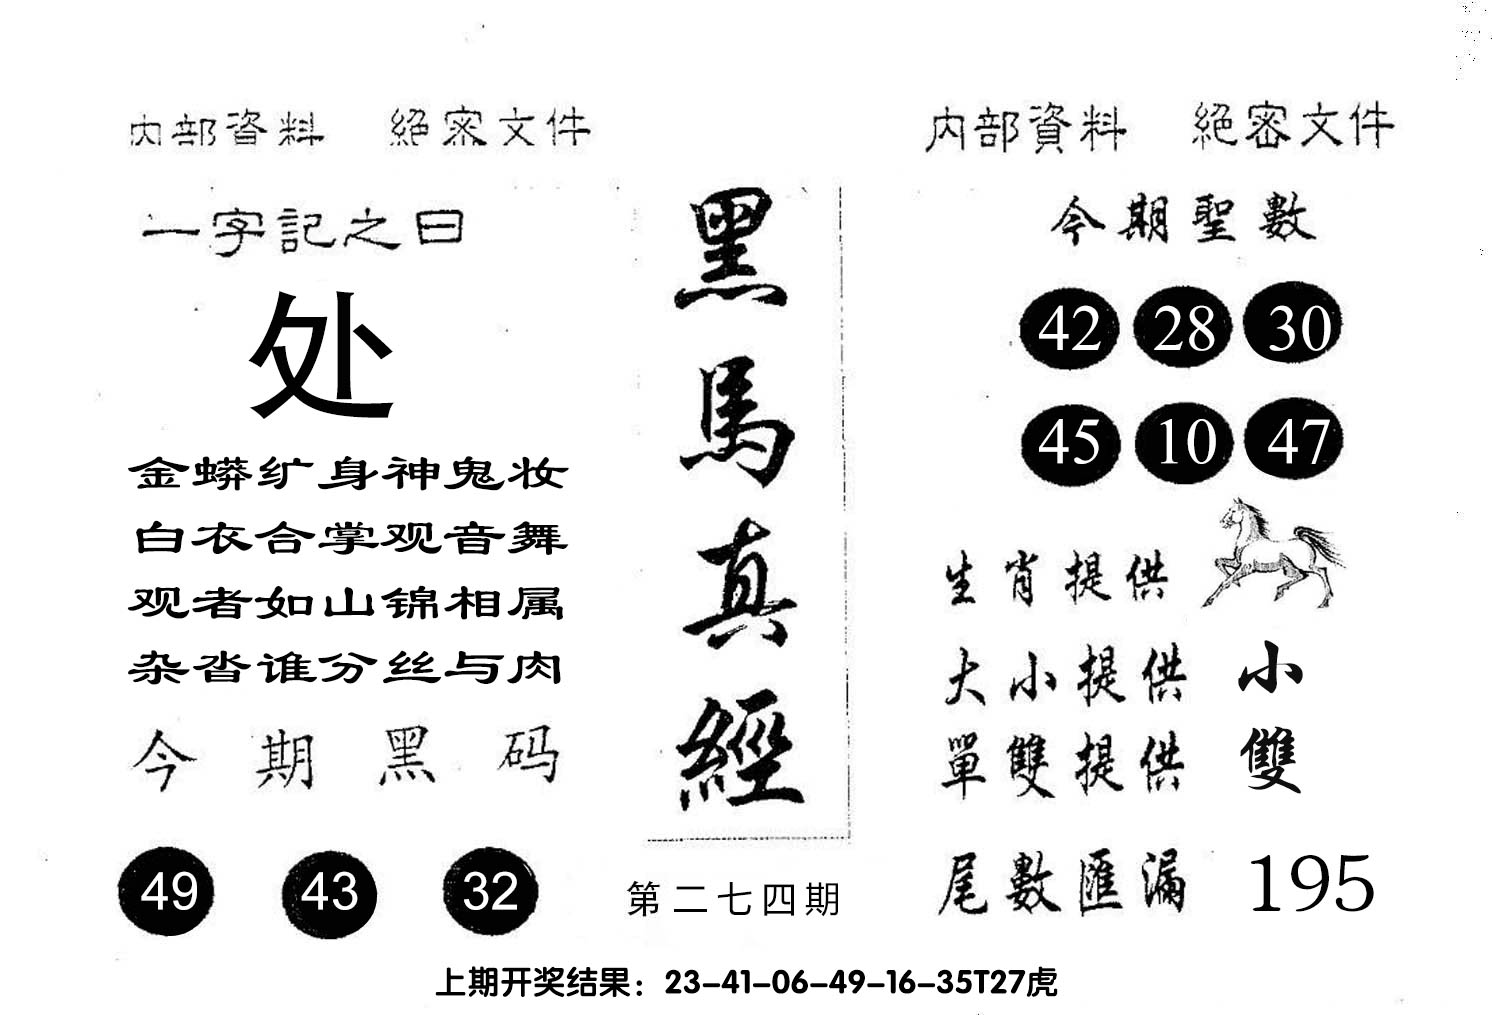 内部資料 絕密文件
一字記之曰
处
金蟒纩身神鬼妆
白衣合掌观音舞
观者如山锦相属
杂沓谁分丝与肉
今期黑码
49 43 32
黑馬真經
第二七四期
内部資料 絕密文件
今期聖數
42 28 30
45 10 47
生肖提供
大小提供 小
單雙提供 雙
尾數匯漏 195
上期开奖结果：23-41-06-49-16-35T27虎